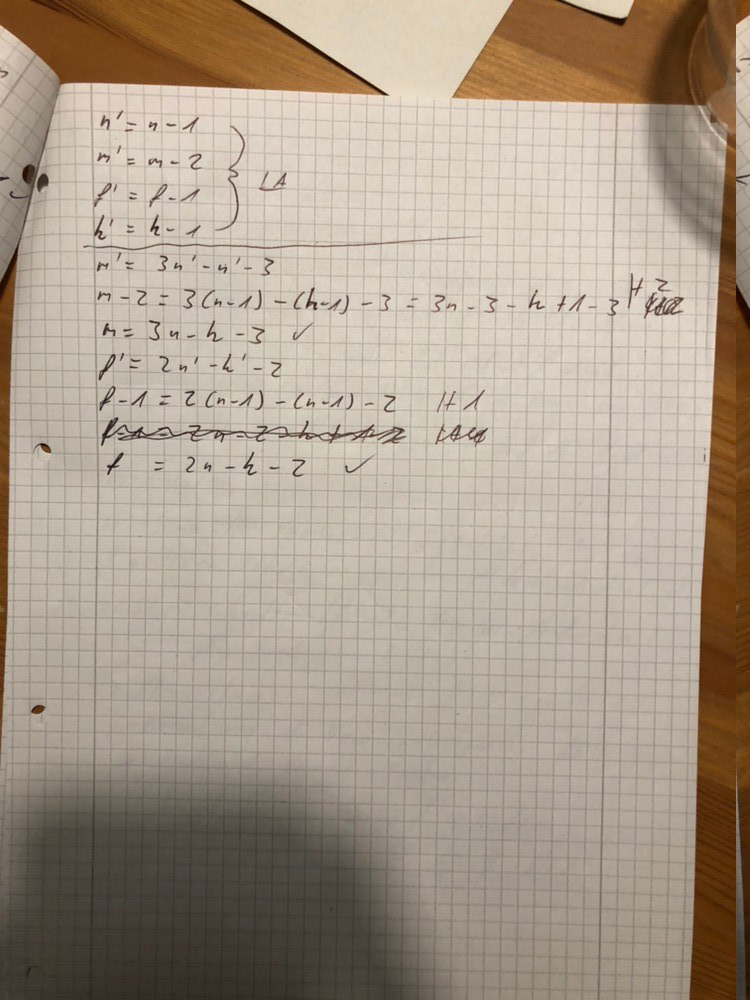 n' = n - 1
m' = m - 2
f' = f - 1
h' = h - 1
IA
m' = 3n' - n' - 3
m - 2 = 3(n-1) - (h-1) - 3 = 3n - 3 - h + 1 - 3 |+ 2
m = 3n - h - 3 ✓
f' = 2n' - h' - 2
f - 1 = 2(n-1) - (n-1) - 2 |+ 1
f = 2n - h - 2 ✓